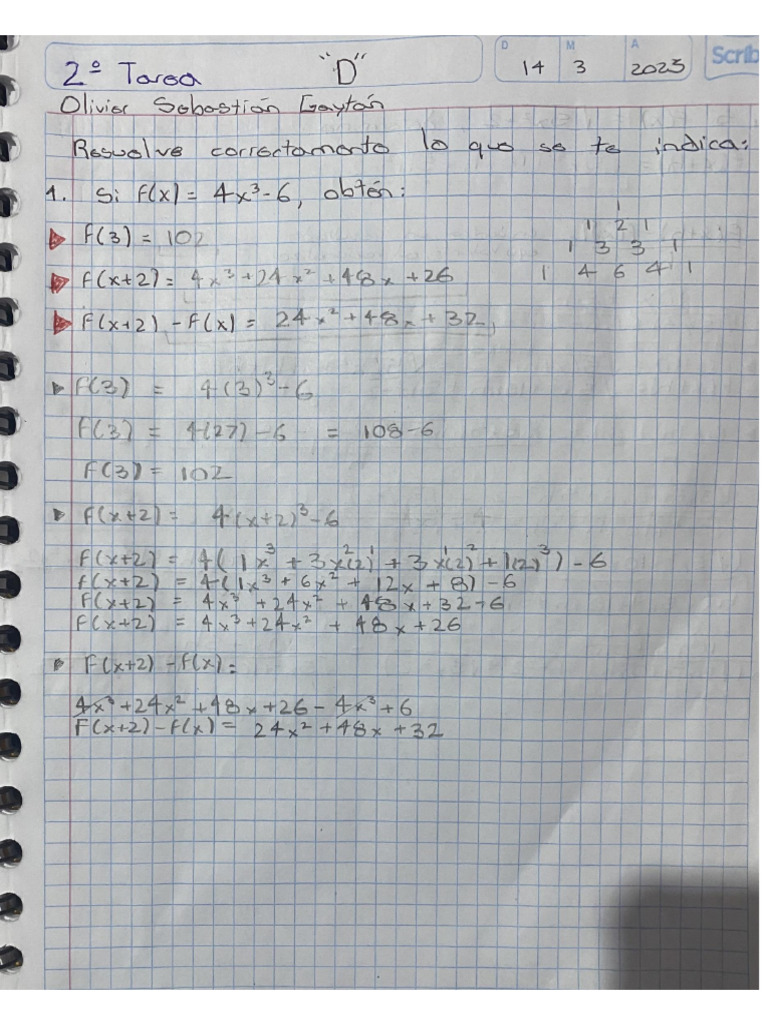 D M A
14 3 2023
Scrib
2º Tarea "D"
Olivier Sebastián Gaytán
Resuelve correctamente lo que se te indica:
1. Si f(x) = 4x³-6, obtén:
1
1 2 1
1 3 3 1
1 4 6 4 1
f(3) = 102
f(x+2) = 4x³+24x²+48x+26
f(x+2) - f(x) = 24x²+48x+32
f(3) = 4(3)³-6
f(3) = 4(27)-6 = 108-6
f(3) = 102
f(x+2) = 4(x+2)³-6
f(x+2) = 4(1x³ + 3x²(2)¹ + 3x¹(2)² + 1(2)³) - 6
f(x+2) = 4(1x³ + 6x² + 12x + 8) - 6
f(x+2) = 4x³ + 24x² + 48x + 32 - 6
f(x+2) = 4x³+24x² + 48x + 26
f(x+2) - f(x):
4x³+24x²+48x+26-4x³+6
f(x+2)-f(x) = 24x²+48x+32